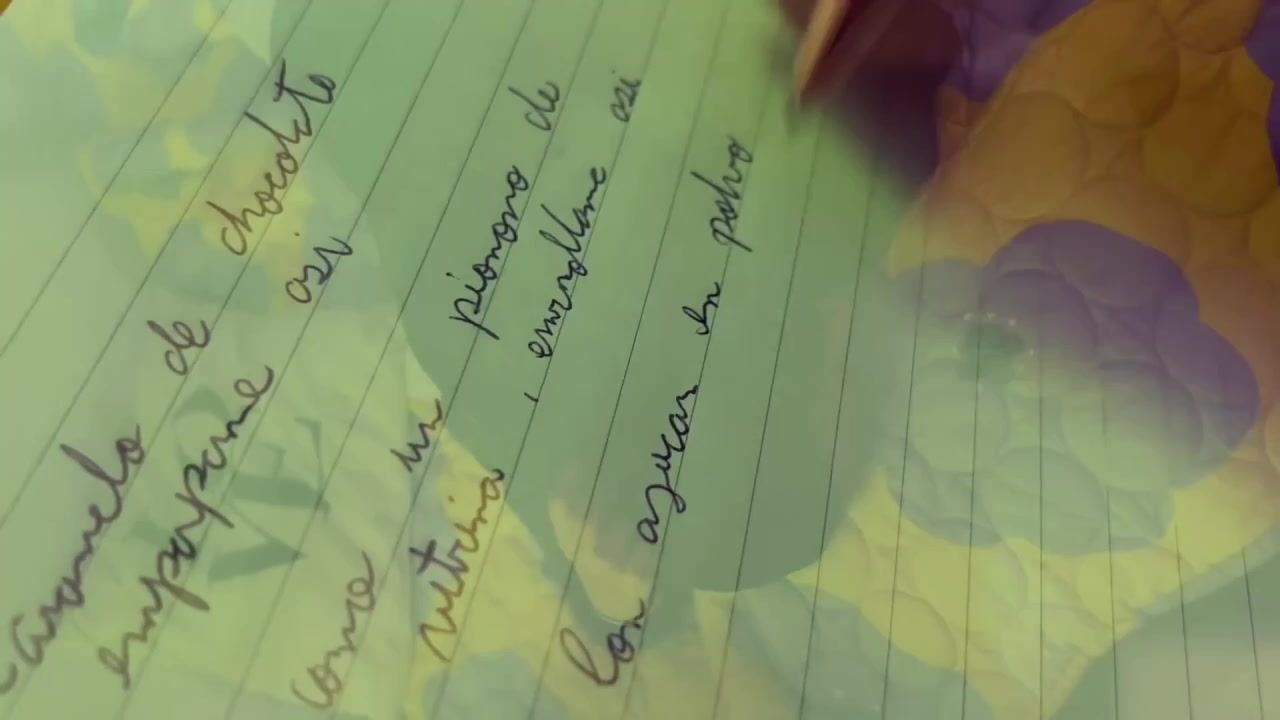 caramelo de chocolate
empapame asi
como un pionono de
vitrina, enrollame asi
Con azucar en polvo